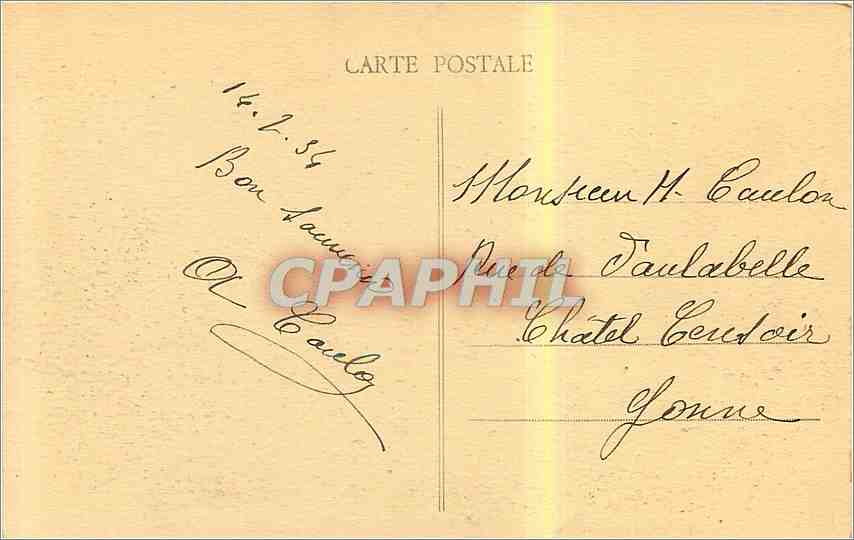 CARTE POSTALE
14.2.34
Bon Souvenir
A Caulon
Monsieur H. Caulon
Rue de Vaulabelle
Châtel Censoir
Yonne
CPAPHIL